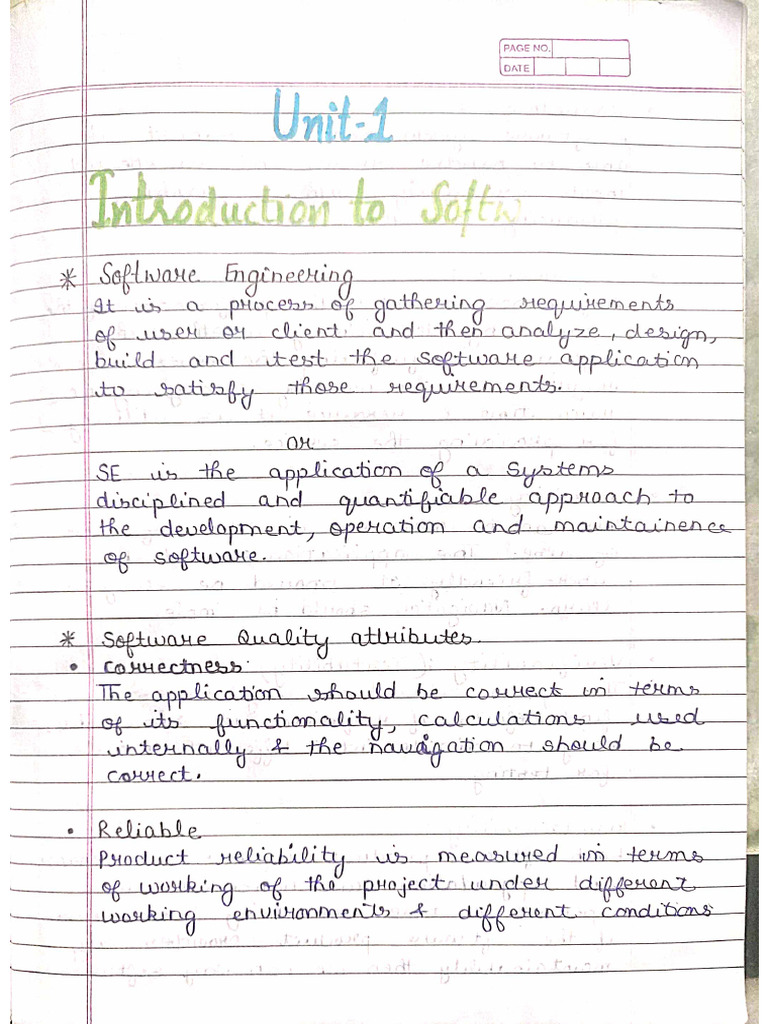 PAGE NO.
DATE
Unit-1
Introduction to Softw
* Software Engineering
It is a process of gathering requirements
of user or client and then analyze, design,
build and test the software application
to satisfy those requirements.
or
SE is the application of a systems
disciplined and quantifiable approach to
the development, operation and maintainence
of software.
* Software Quality attributes.
• Correctness:
The application should be correct in terms
of its functionality, calculations used
internally & the navigation should be
correct.
• Reliable
Product reliability is measured in terms
of working of the project under different
working environments & different conditions